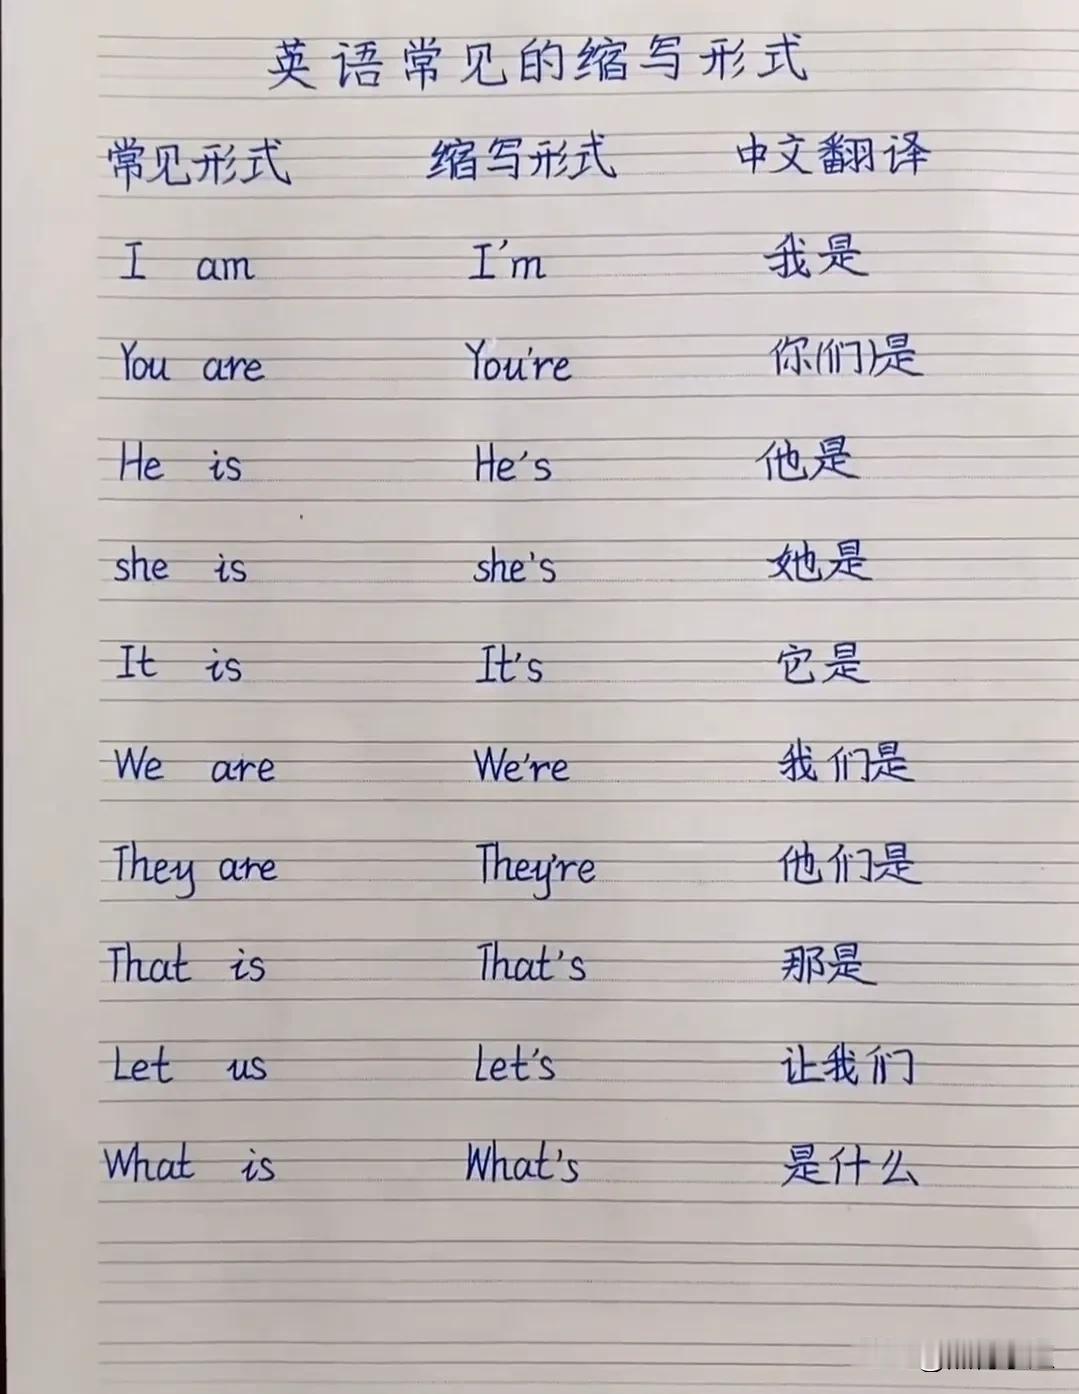 英语常见的缩写形式
常见形式 缩写形式 中文翻译
I am I'm 我是
You are You're 你(们)是
He is He's 他是
she is she's 她是
It is It's 它是
We are We're 我们是
They are They're 他们是
That is That's 那是
Let us Let's 让我们
What is What's 是什么